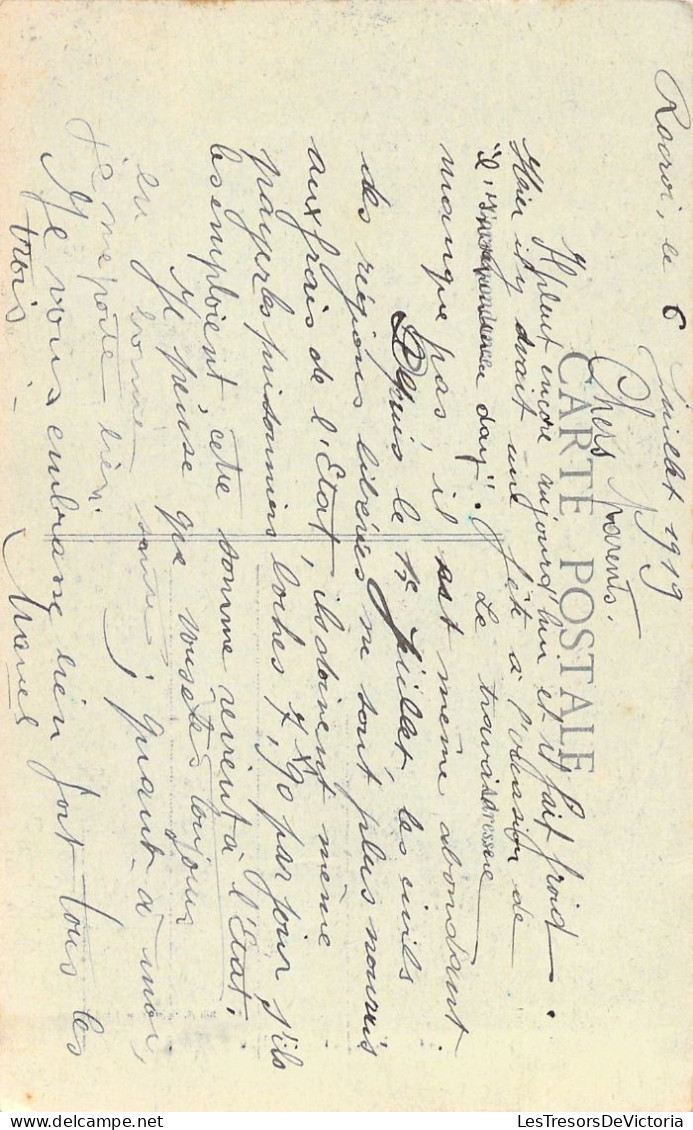 Rocroi, le 6 Juillet 1919
Chers parents.
Il pleut encore aujourd'hui et il fait froid.
Hier il y avait une fête à l'occasion de
"l'Independence day". Le travail
manque pas, il est même abondant.
Depuis le 1er Juillet, les civils
des régions libérées ne sont plus nourris
aux frais de l'Etat, ils doivent même
payer les prisonniers boches 7,90 par jour s'ils
les emploient, cette somme revient à l'Etat.
Je pense que vous êtes toujours
en bonne santé, quant à moi,
je me porte bien.
Je vous embrasse bien fort tous les
trois -
Marcel
CARTE POSTALE
Correspondance
Adresse
LesTresorsDeVictoria